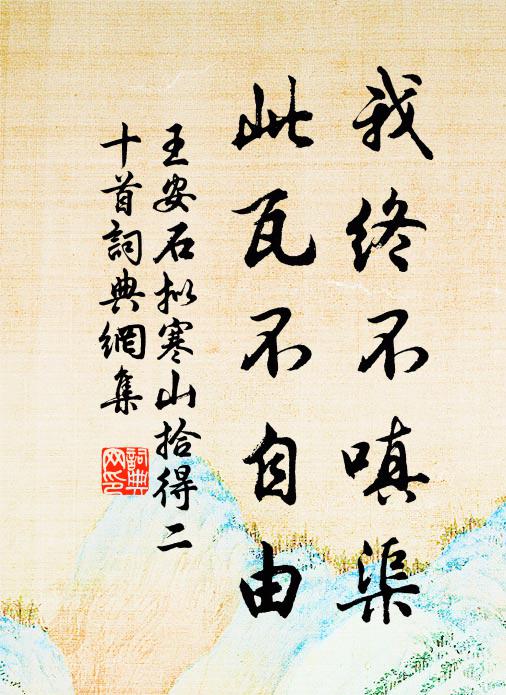 我终不嗔渠
此瓦不自由
王安石拟寒山拾得二
十首詞典網集
詞典网印